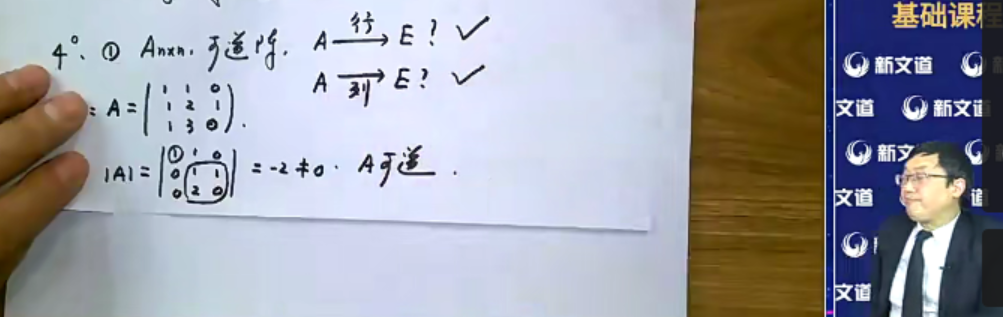 4°. ① Aₙₓₙ, 可逆阵. A —行→ E? ✓
A —列→ E? ✓
: A = ( 1 1 0
1 2 1
1 3 0 ).
|A| = | ① 1 0
0 1 1
0 2 0 | = -2 ≠ 0. A可逆.
基础课程
新文道
文道 新文道
新文
文道 道
文道
新文道
文道